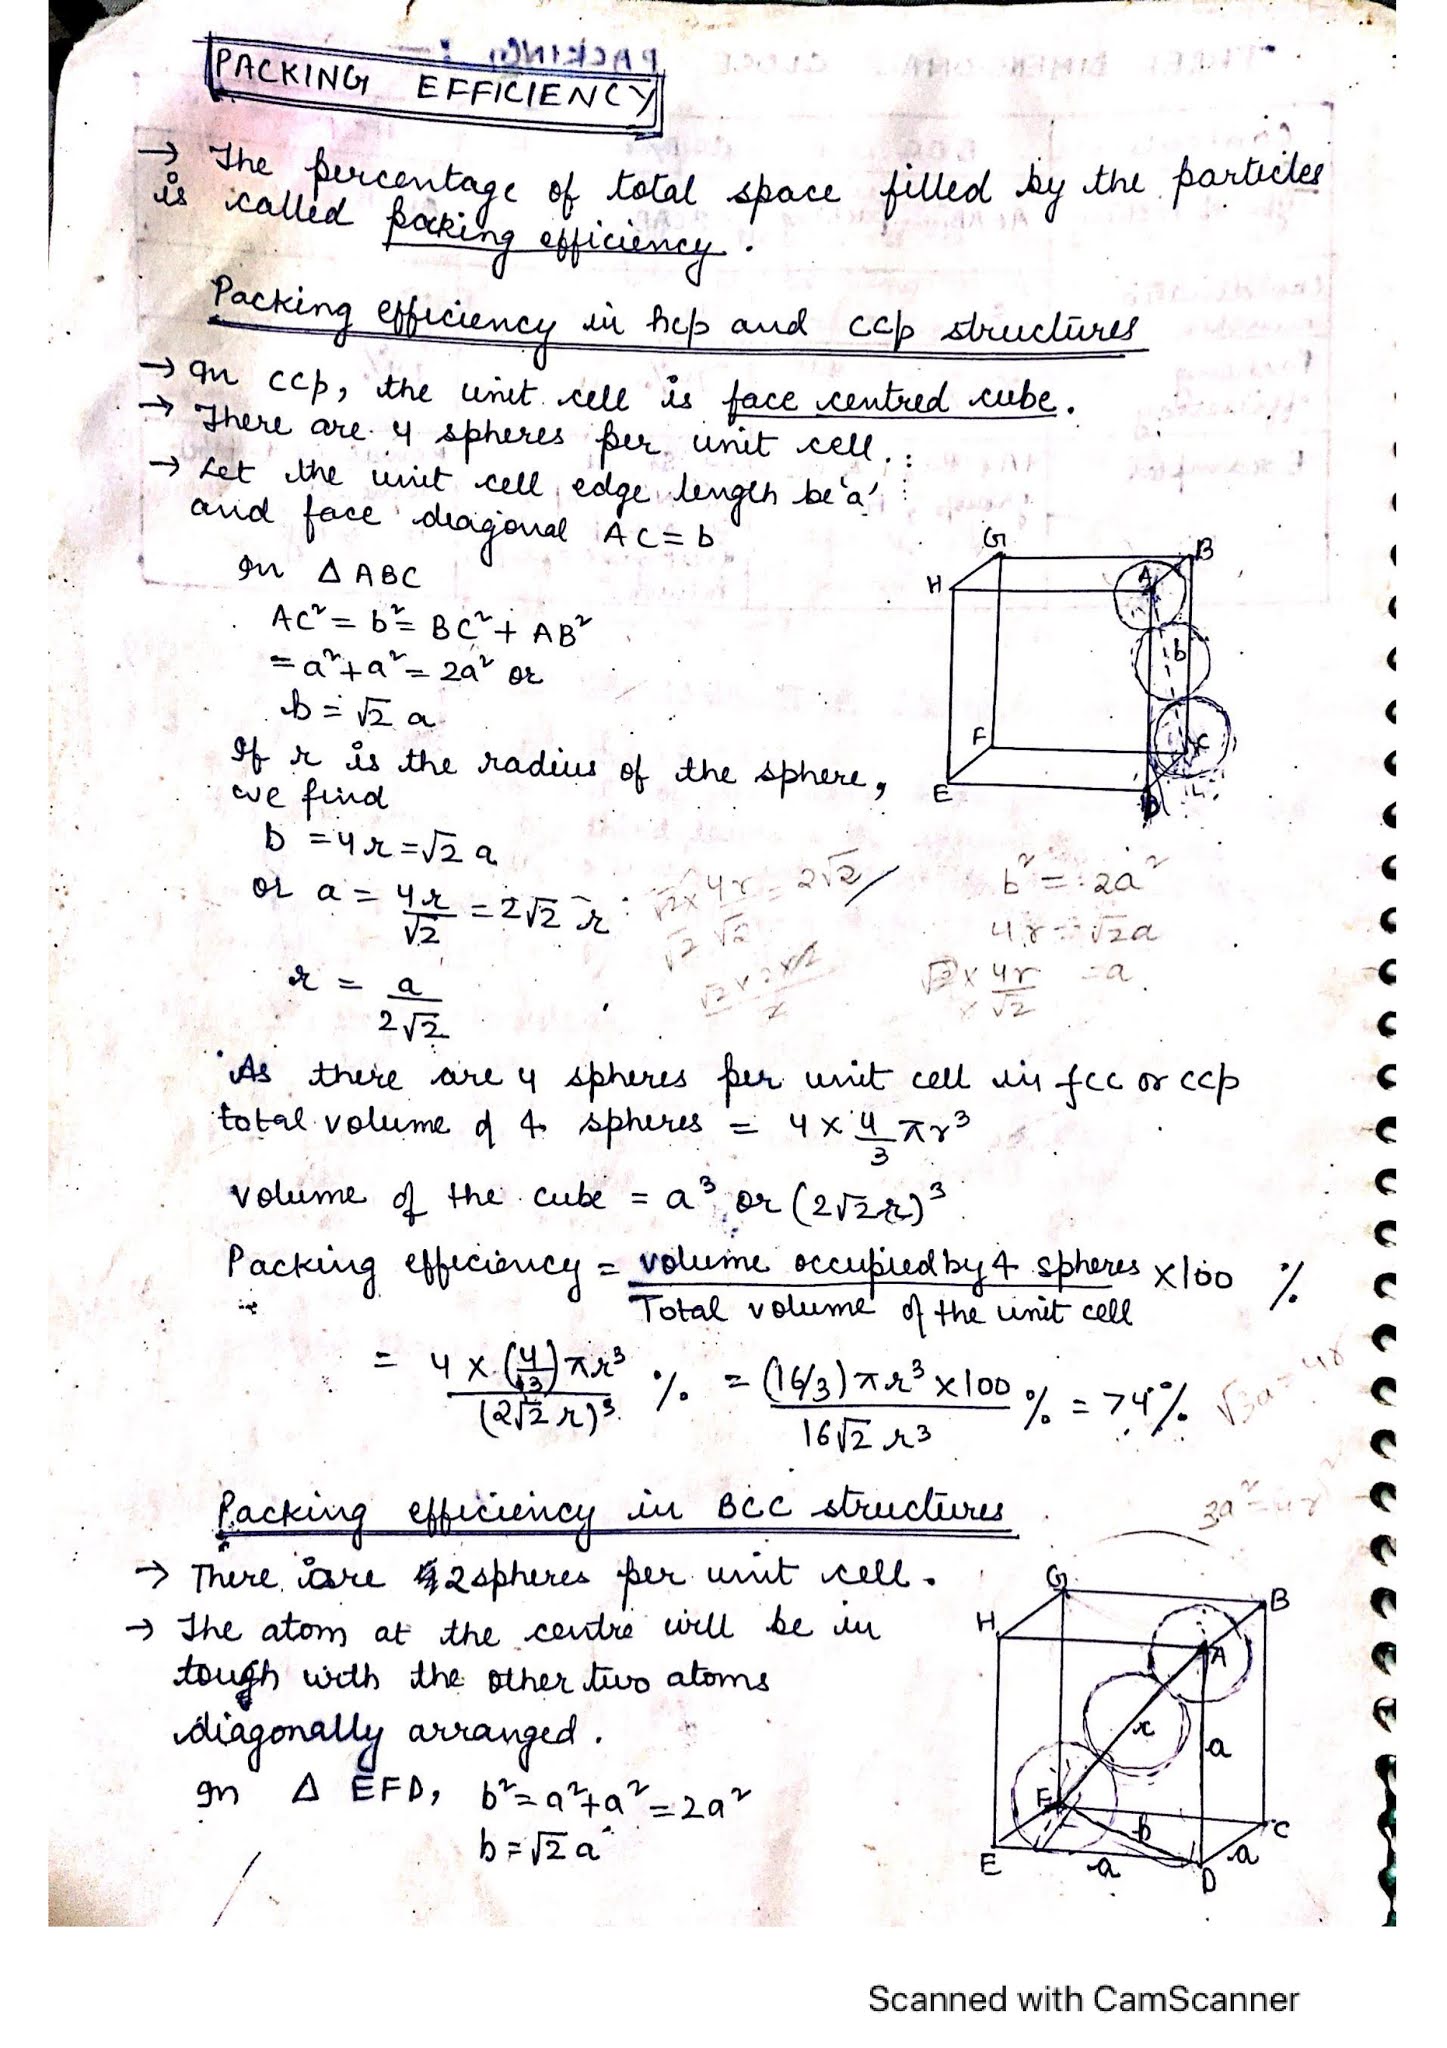 PACKING EFFICIENCY
→ The percentage of total space filled by the particles
is called packing efficiency.
Packing efficiency in hcp and ccp structures
→ In ccp, the unit cell is face centred cube.
→ There are 4 spheres per unit cell.
→ Let the unit cell edge length be 'a'
and face diagonal AC = b
In Δ ABC
AC² = b² = BC² + AB²
= a² + a² = 2a² or
b = √2 a
If r is the radius of the sphere,
we find
b = 4r = √2 a
or a = 4r/√2 = 2√2 r
r = a/2√2
G B
H A
b
F C
E D
√2/√2 × 4r/√2 = 2√2
b² = 2a²
4r = √2a
√2 × 4r/√2 = a
As there are 4 spheres per unit cell in fcc or ccp
total volume of 4 spheres = 4 × 4/3 πr³
volume of the cube = a³ or (2√2r)³
Packing efficiency = volume occupied by 4 spheres ×100 %
Total volume of the unit cell
= 4 × (4/3) πr³ / (2√2 r)³ % = (16/3) πr³ ×100 / 16√2 r³ % = 74%
√3a = 4r
Packing efficiency in BCC structures
→ There are 2 spheres per unit cell.
→ The atom at the centre will be in
tough with the other two atoms
diagonally arranged.
In Δ EFD, b² = a² + a² = 2a²
b = √2 a
G B
H A
c a
F b C
E a D a
Scanned with CamScanner